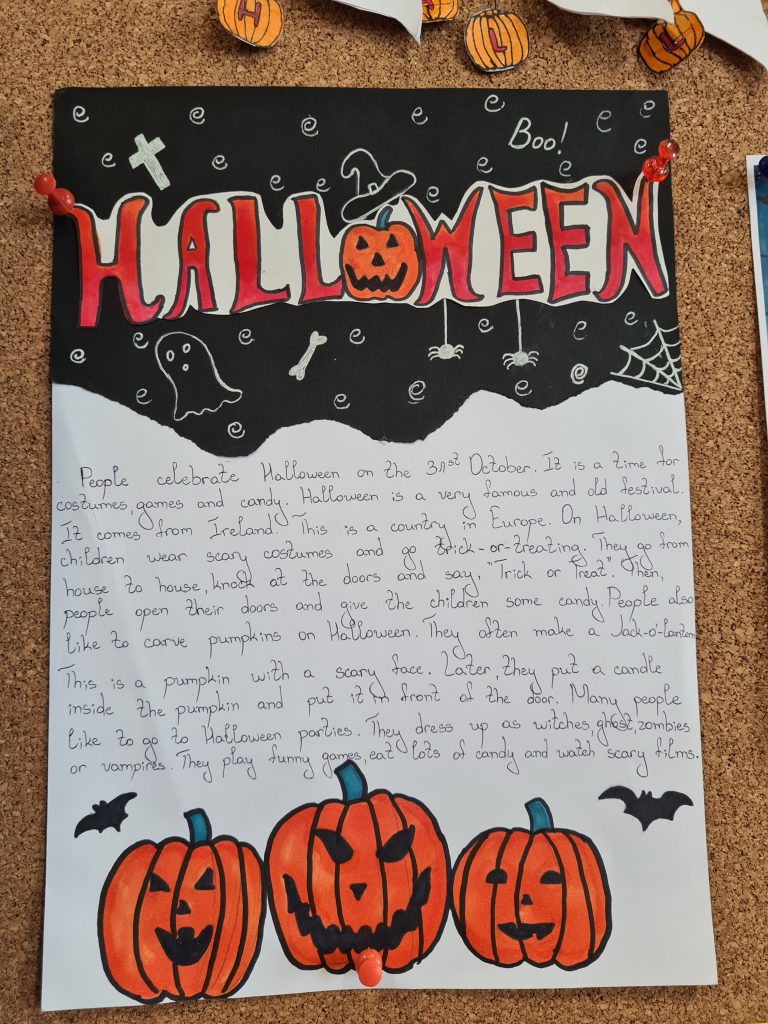 H L L
Boo!
HALLOWEEN
People celebrate Halloween on the 31st October. It is a time for
costumes, games and candy. Halloween is a very famous and old festival.
It comes from Ireland. This is a country in Europe. On Halloween,
children wear scary costumes and go trick-or-treating. They go from
house to house, knock at the doors and say, "Trick or Treat". Then,
people open their doors and give the children some candy. People also
like to carve pumpkins on Halloween. They often make a Jack-o'-lantern
This is a pumpkin with a scary face. Later, they put a candle
inside the pumpkin and put it in front of the door. Many people
like to go to Halloween parties. They dress up as witches, ghost, zombies
or vampires. They play funny games, eat lots of candy and watch scary films.